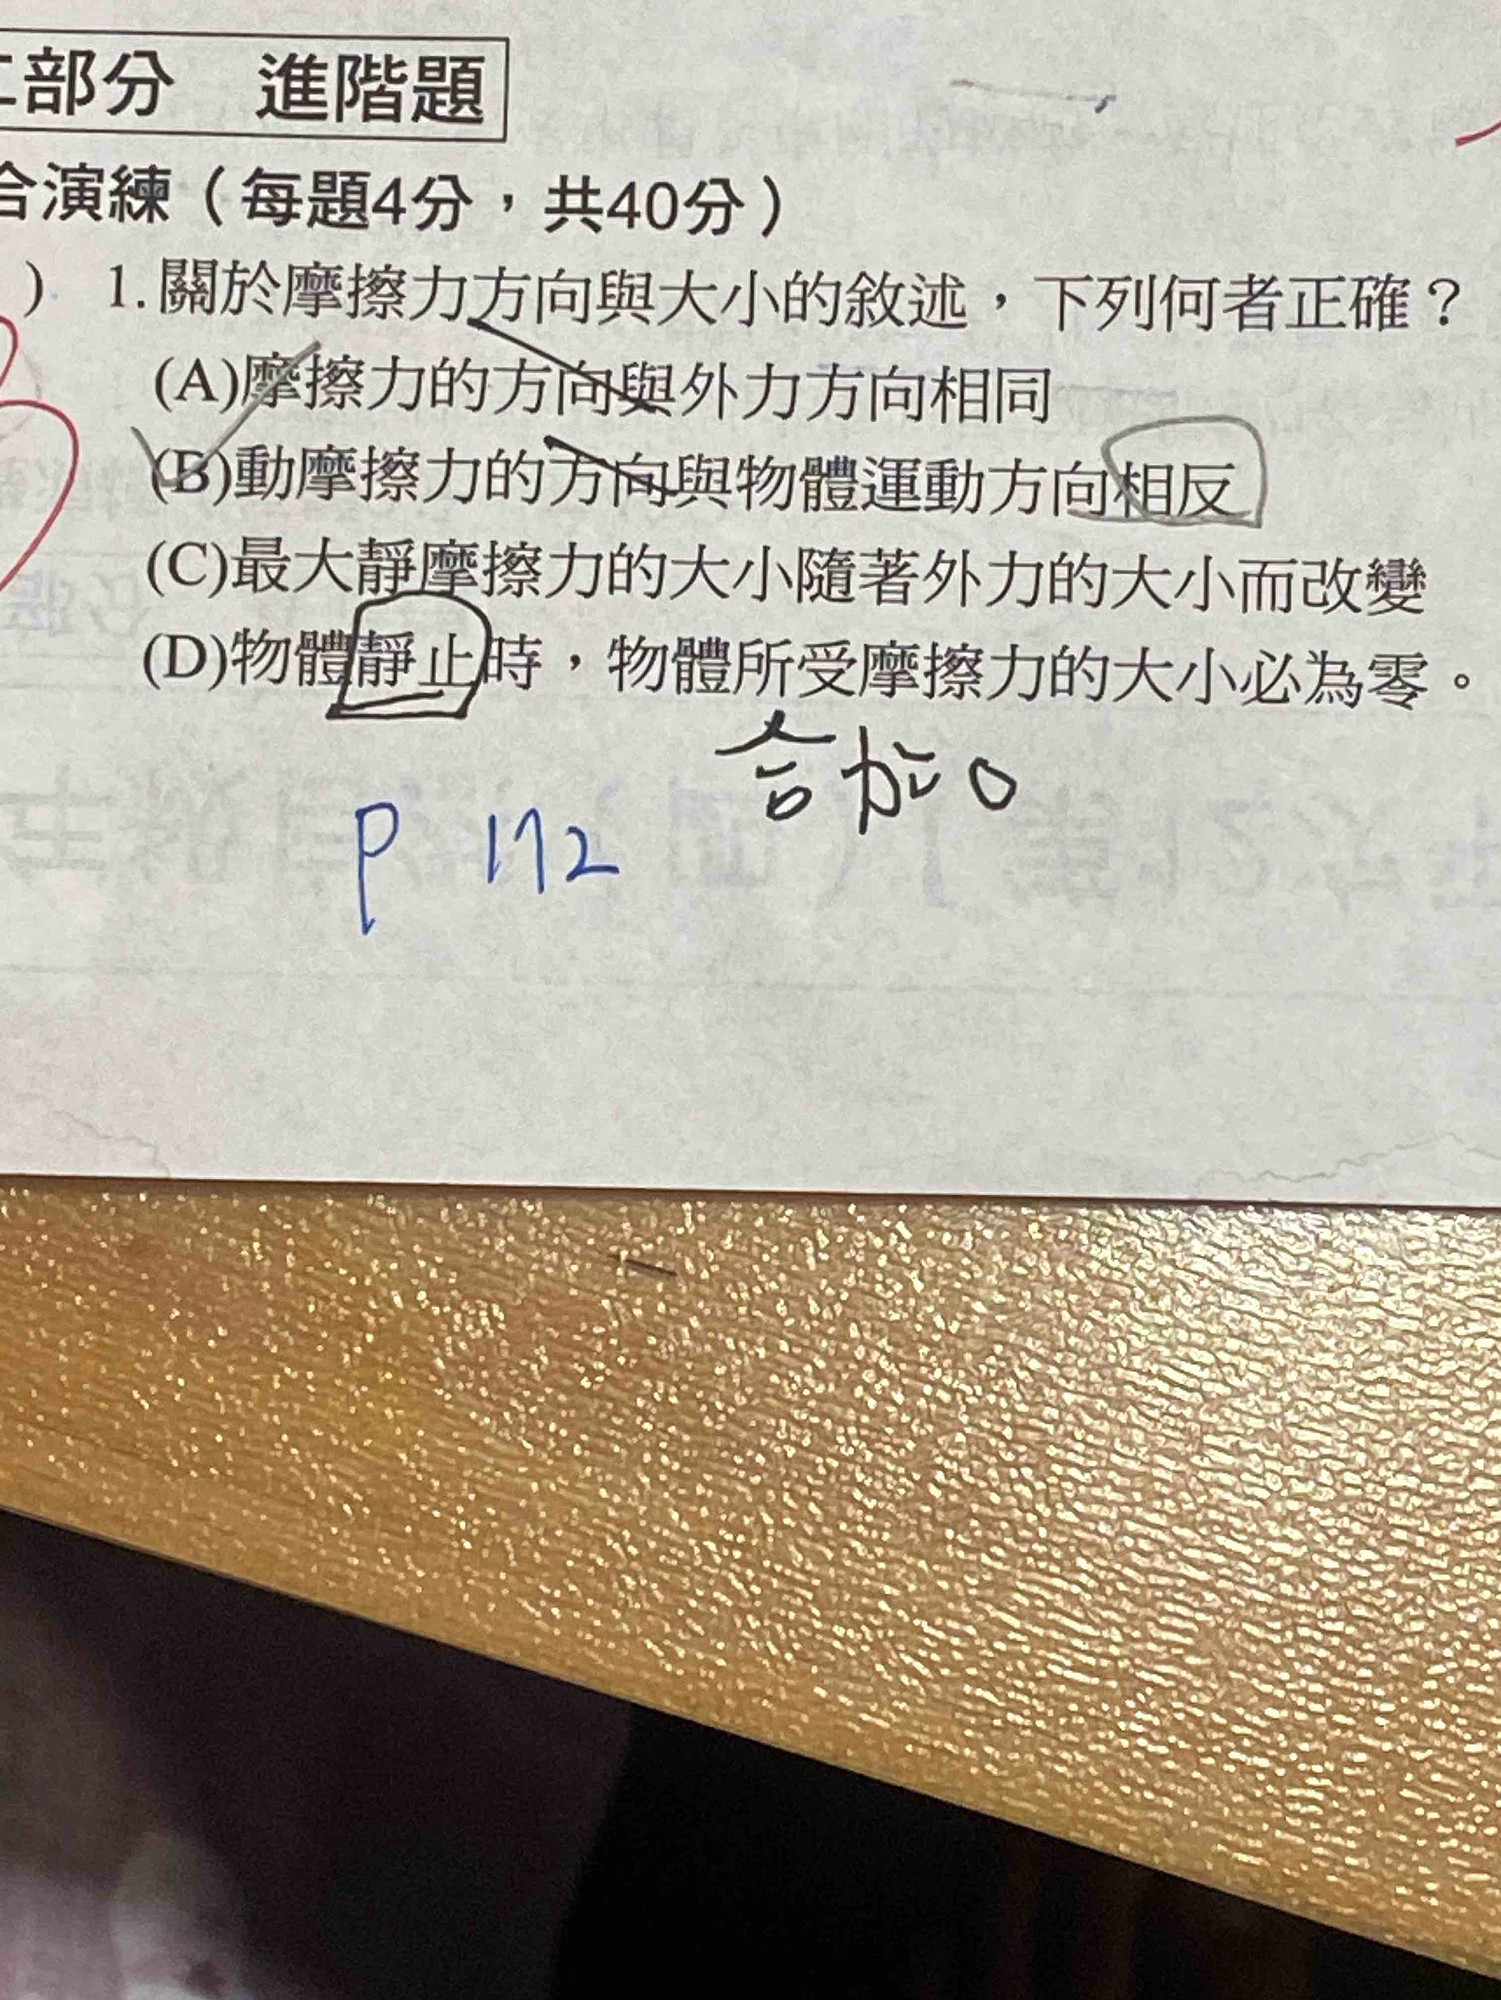 部分 進階題
合演練（每題4分，共40分）
) 1.關於摩擦力方向與大小的敘述，下列何者正確？
(A)摩擦力的方向與外力方向相同
(B)動摩擦力的方向與物體運動方向相反
(C)最大靜摩擦力的大小隨著外力的大小而改變
(D)物體靜止時，物體所受摩擦力的大小必為零。
合力=0
P 172